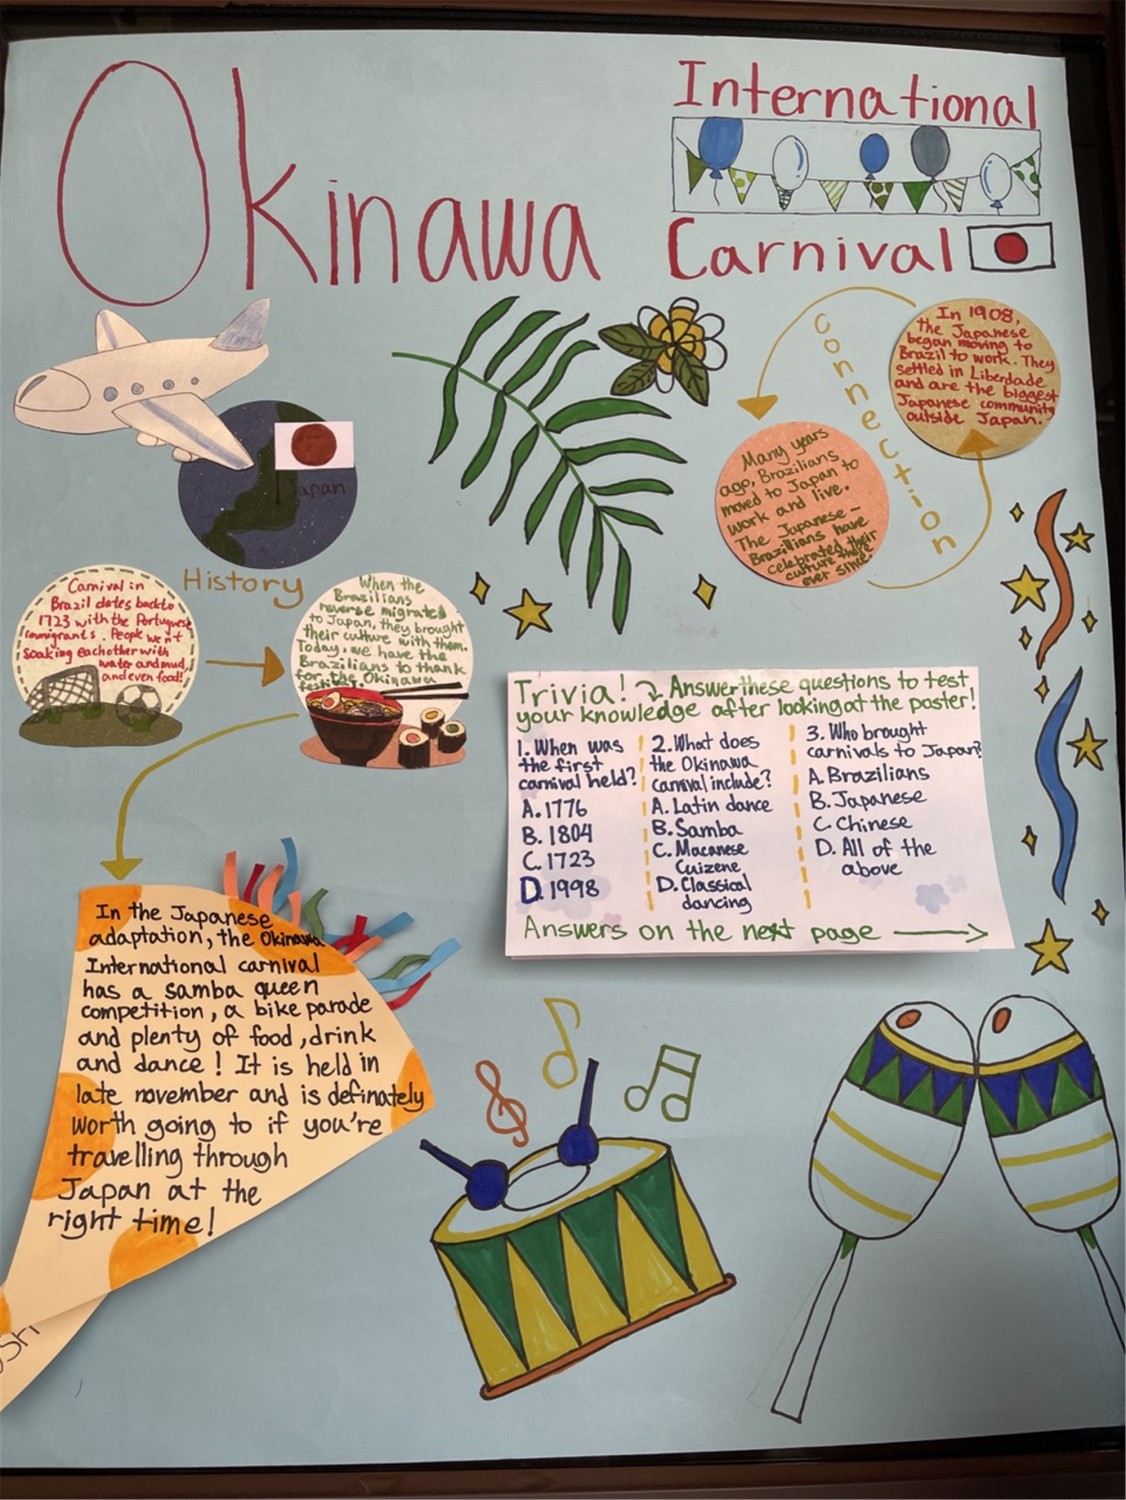 Okinawa
International
Carnival
Japan
In 1908,
the Japanese
began moving to
Brazil to work. They
settled in Liberdade
and are the biggest
Japanese community
outside Japan.
connection
Many years
ago, Brazilians
moved to Japan to
work and live.
The Japanese -
Brazillians have
celebrated their
culture there
ever since.
History
Carnival in
Brazil dates back to
1723 with the Portuguese
immigrants. People went
soaking eachother with
water and mud,
and even food!
When the
Brazilians
reverse migrated
to Japan, they brought
their culture with them.
Today, we have the
Brazilians to thank
for the Okinawa
festival.
Trivia! Answer these questions to test
your knowledge after looking at the poster!
1. When was
the first
carnival held?
A. 1776
B. 1804
C. 1723
D. 1998
2. What does
the Okinawa
carnival include?
A. Latin dance
B. Samba
C. Macanese
Cuizene
D. Classical
dancing
3. Who brought
carnivals to Japan?
A. Brazilians
B. Japanese
C. Chinese
D. All of the
above
Answers on the next page
In the Japanese
adaptation, the Okinawa
International carnival
has a samba queen
competition, a bike parade
and plenty of food, drink
and dance! It is held in
late november and is definately
worth going to if you're
travelling through
Japan at the
right time!